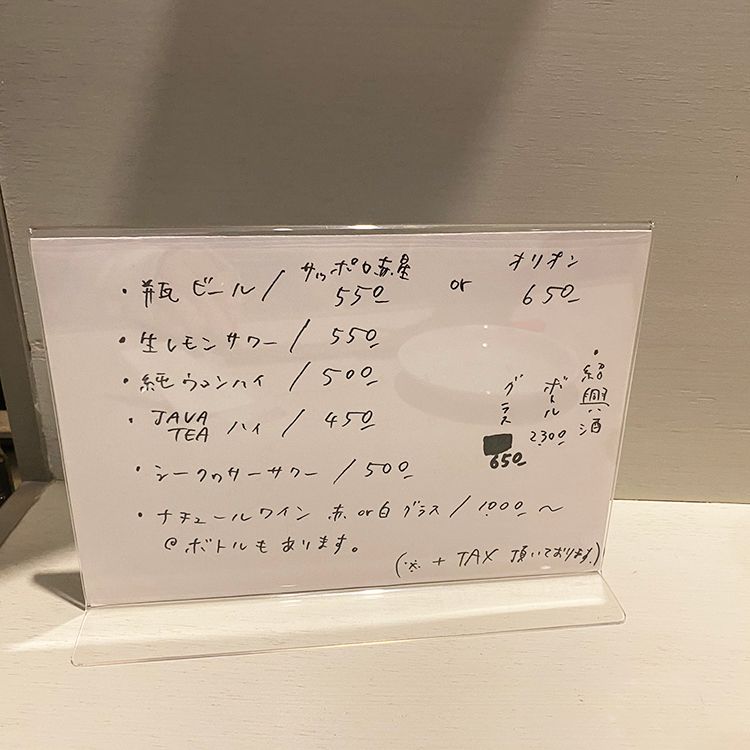 ・瓶ビール / サッポロ赤星 550 or オリオン 650
・生レモンサワー / 550
・純ウコンハイ / 500
・JAVA TEA ハイ / 450
・シークヮサーサワー / 500
・ナチュールワイン 赤or白 グラス / 1000〜
@ボトルもあります。
・紹興酒
ボトル 2300
グラス 650
(※ + TAX 頂いております.)